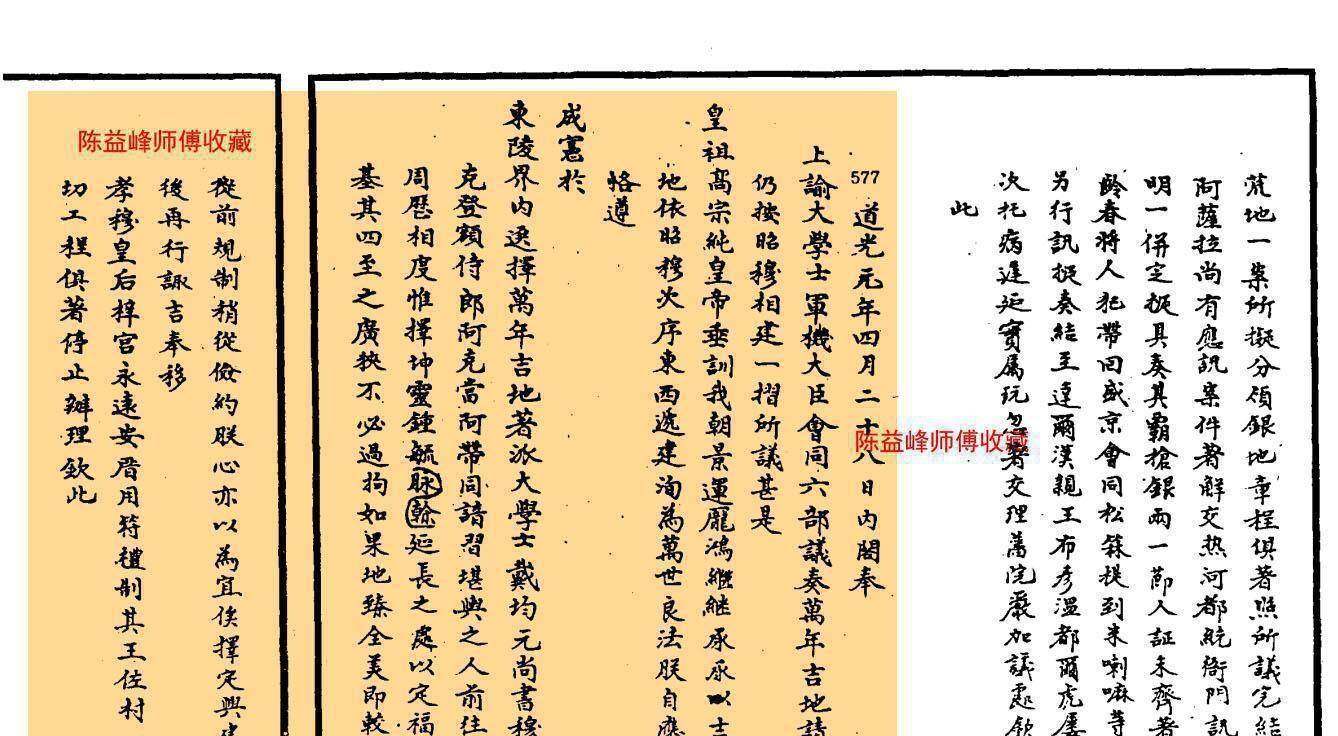 荒地一案所擬分領銀地章程俱著照所議完結
阿薩拉尚有應訊案件著解交热河都統衙門訊
明一併定擬具奏其霸搶銀兩一節人証未齊著
齡春將人犯帶回盛京會同松箖提到来喇嘛等
另行訊擬奏結王達爾漢親王布彦溫都爾虎屢
次托病遲延實属玩忽著交理藩院嚴加議處欽
此
577 道光元年四月二十八日内閣奉
上諭大學士軍機大臣會同六部議奏萬年吉地請
仍按昭穆相建一摺所議甚是
皇祖高宗純皇帝垂訓我朝景運龐鴻継継承承以士
地依昭穆次序東西遞建洵為萬世良法朕自應
恪遵
成憲於
東陵界内選擇萬年吉地著派大學士戴均元尚書穆
克登額侍郎阿克當阿帶同諳習堪輿之人前往
周歷相度惟擇坤靈鍾毓脉龣延長之處以定福
基其四至之廣狹不必過拘如果地臻全美即較
從前規制稍從儉約朕心亦以為宜俟擇定興建
後再行諏吉奉移
孝穆皇后梓宫永遠安厝用符禮制其王佐村
切工程俱著停止辦理欽此
陈益峰师傅收藏
陈益峰师傅收藏